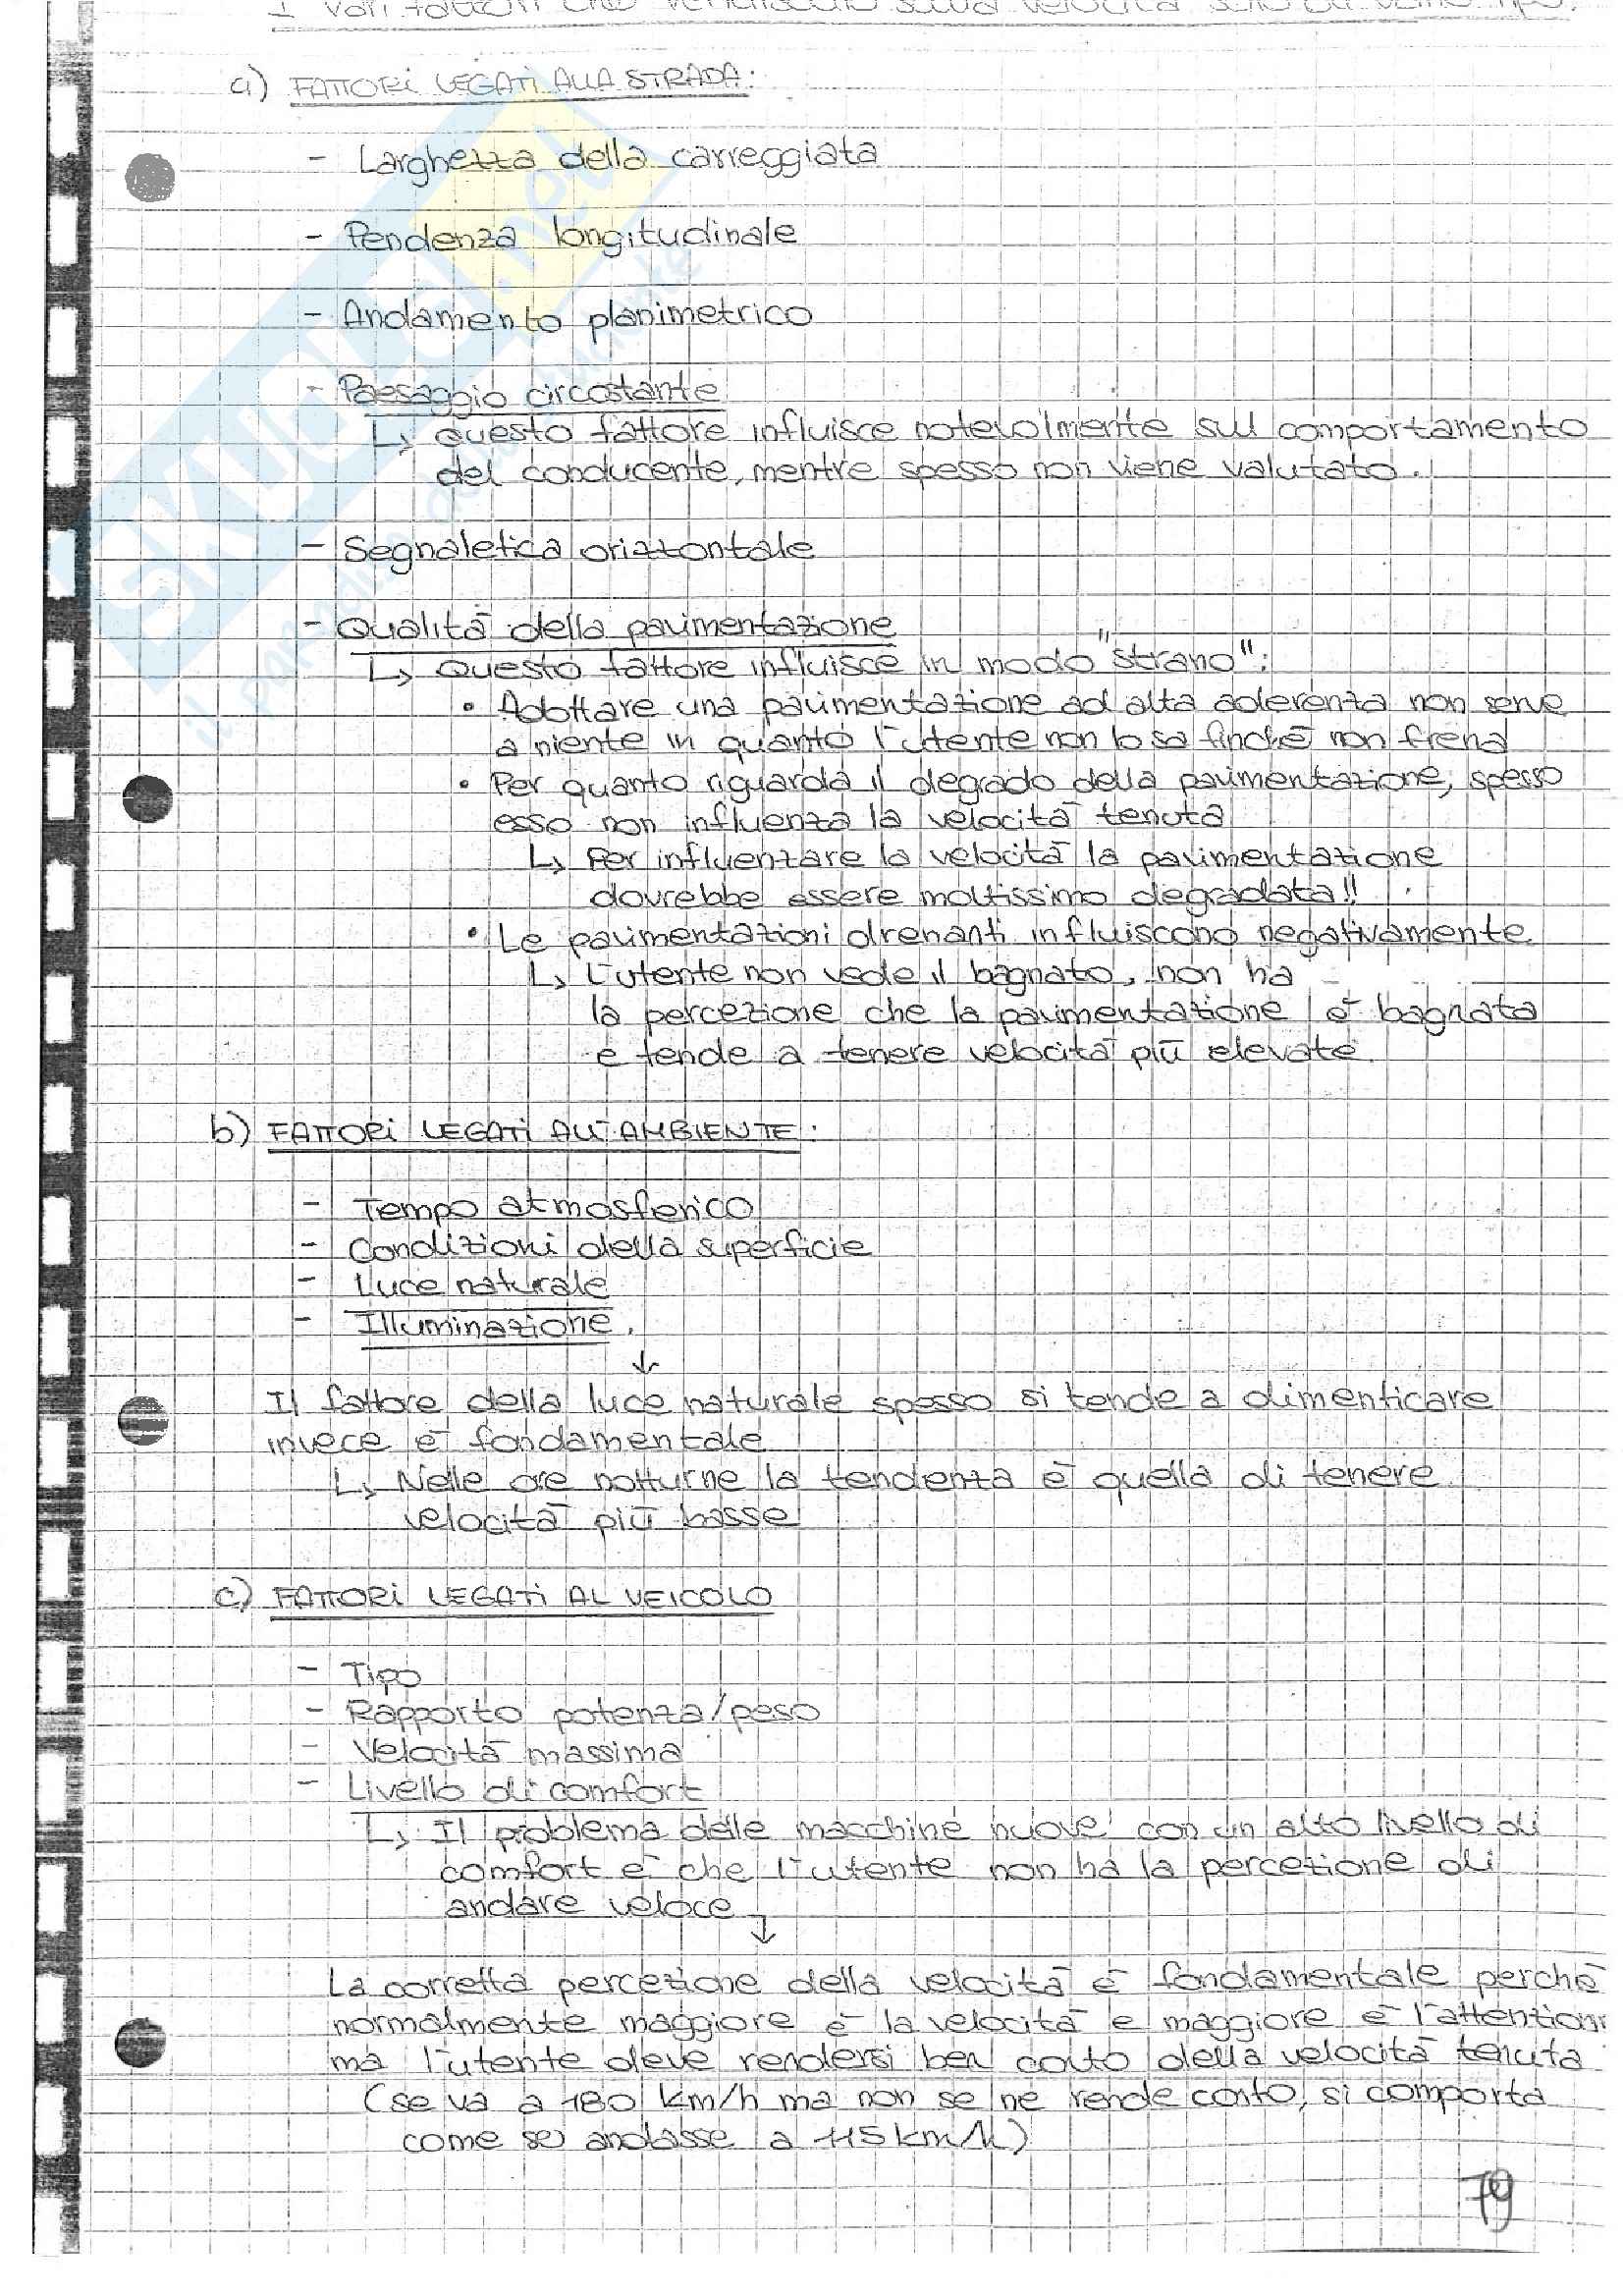 I vari fattori che sulla velocità sono di vario tipo:
a) FATTORI LEGATI ALLA STRADA:
- Larghezza della carreggiata
- Pendenza longitudinale
- Andamento planimetrico
- Paesaggio circostante
↳ Questo fattore influisce notevolmente sul comportamento
del conducente, mentre spesso non viene valutato.
- Segnaletica orizzontale
- Qualità della pavimentazione
↳ Questo fattore influisce in modo "strano":
• Adottare una pavimentazione ad alta aderenza non serve
a niente in quanto l'utente non lo sa finchè non frena
• Per quanto riguarda il degrado della pavimentazione, spesso
esso non influenza la velocità tenuta
↳ Per influenzare la velocità la pavimentazione
dovrebbe essere moltissimo degradata!!
• Le pavimentazioni drenanti influiscono negativamente.
↳ L'utente non vede il bagnato, non ha
la percezione che la pavimentazione è bagnata
e tende a tenere velocità più elevate.
b) FATTORI LEGATI ALL'AMBIENTE:
- Tempo atmosferico
- Condizioni della superficie
- Luce naturale
- Illuminazione.
↓
Il fattore della luce naturale spesso si tende a dimenticare
invece è fondamentale
↳ Nelle ore notturne la tendenza è quella di tenere
velocità più basse
c) FATTORI LEGATI AL VEICOLO
- Tipo
- Rapporto potenza/peso
- Velocità massima
- Livello di comfort
↳ Il problema delle macchine nuove con un alto livello di
comfort è che l'utente non ha la percezione di
andare veloce
↓
La corretta percezione della velocità è fondamentale perchè
normalmente maggiore è la velocità e maggiore è l'attenzione
ma l'utente deve rendersi ben conto della velocità tenuta
(se va a 180 km/h ma non se ne rende conto, si comporta
come se andasse a 115 km/h)
79
SKUOLA.net